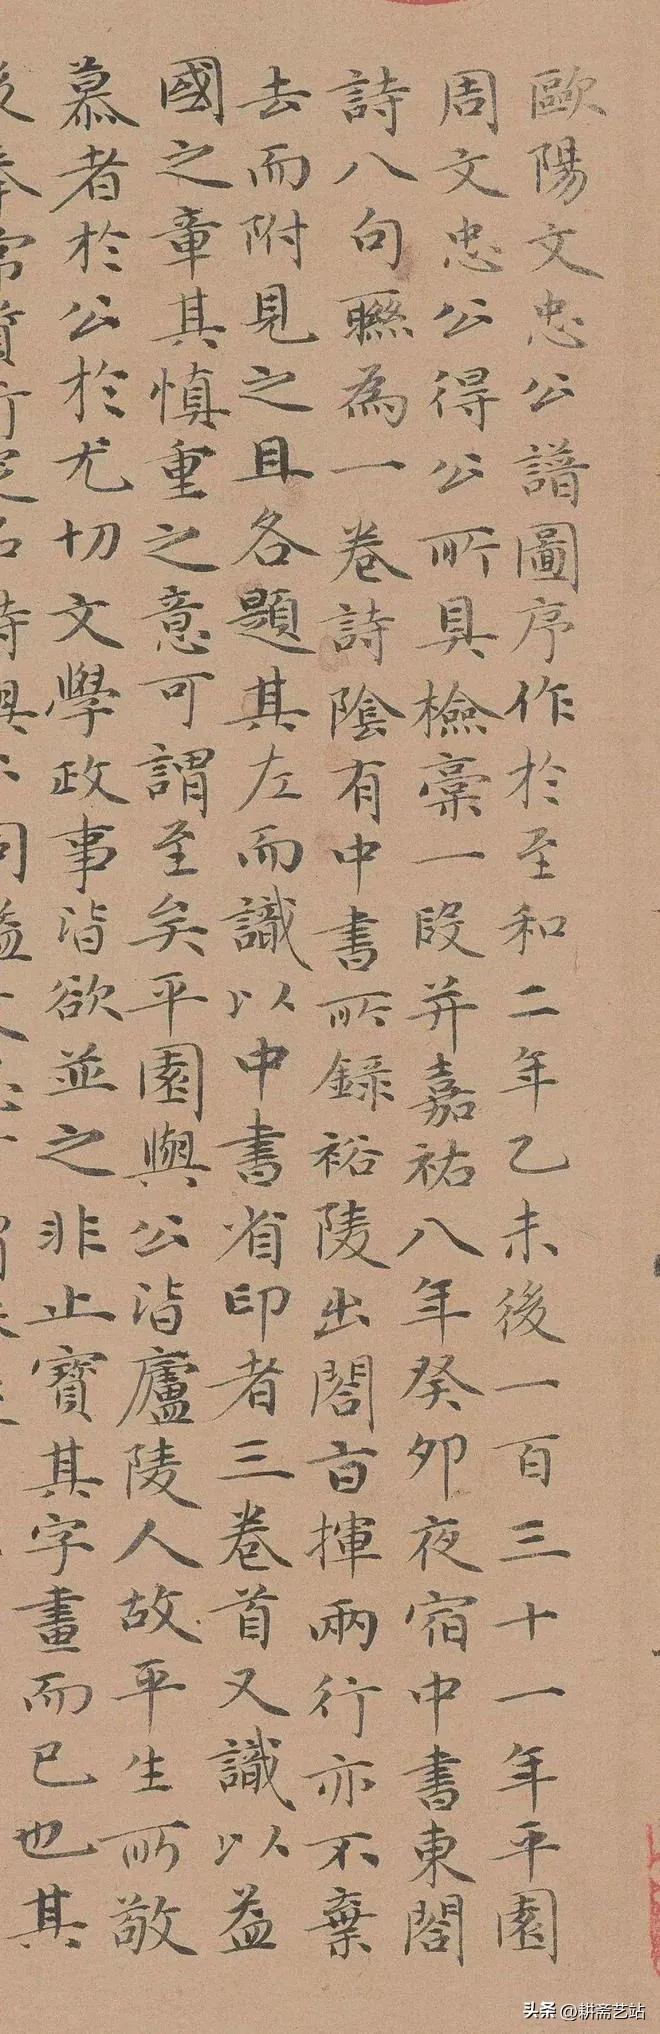 歐陽文忠公譜圖序作於至和二年乙未後一百三十一年平園
周文忠公得公所具檢稾一段并嘉祐八年癸卯夜宿中書東閤
詩八句聮為一卷詩陰有中書所錄裕陵出閤百揮兩行亦不棄
去而附見之且各題其左而識以中書省印者三卷首又識以益
國之章其慎重之意可謂至矣平園與公皆廬陵人故平生所敬
慕者於公於尤切文學政事皆欲並之非止寶其字畫而已也其
頭条 @耕斋艺站